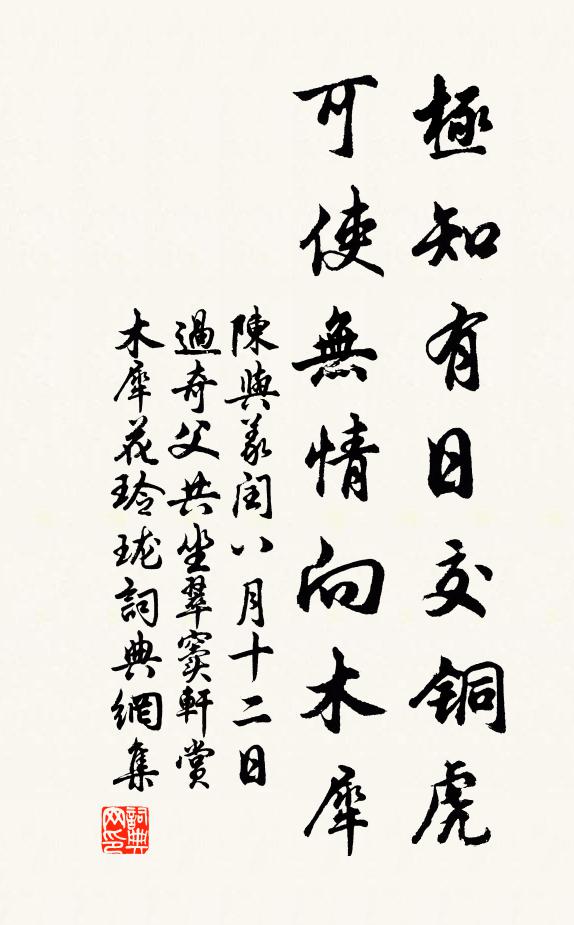 極知有日交铜虎
可使無情向木犀
陳與義閏八月十二日
過奇父共坐翠窦軒賞
木犀花玲珑詞典網集
詞典
网印